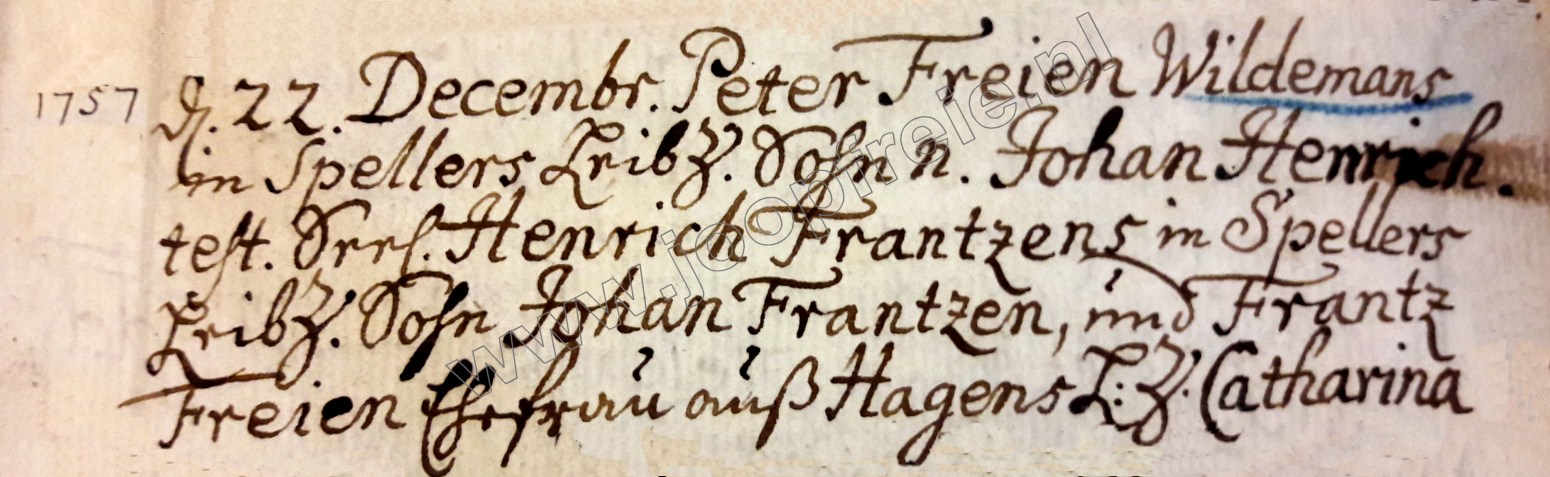 1757 d. 22. Decembr. Peter Freien Wildemans
in Spellers LeibZ. Sohn n. Johan Henrich.
test. Henrich Frantzens in Spellers
LeibZ. Sohn Johan Frantzen, und Frantz
Freien Ehefrau auß Hagens L: Z. Catharina
www.jeopfreie.nl